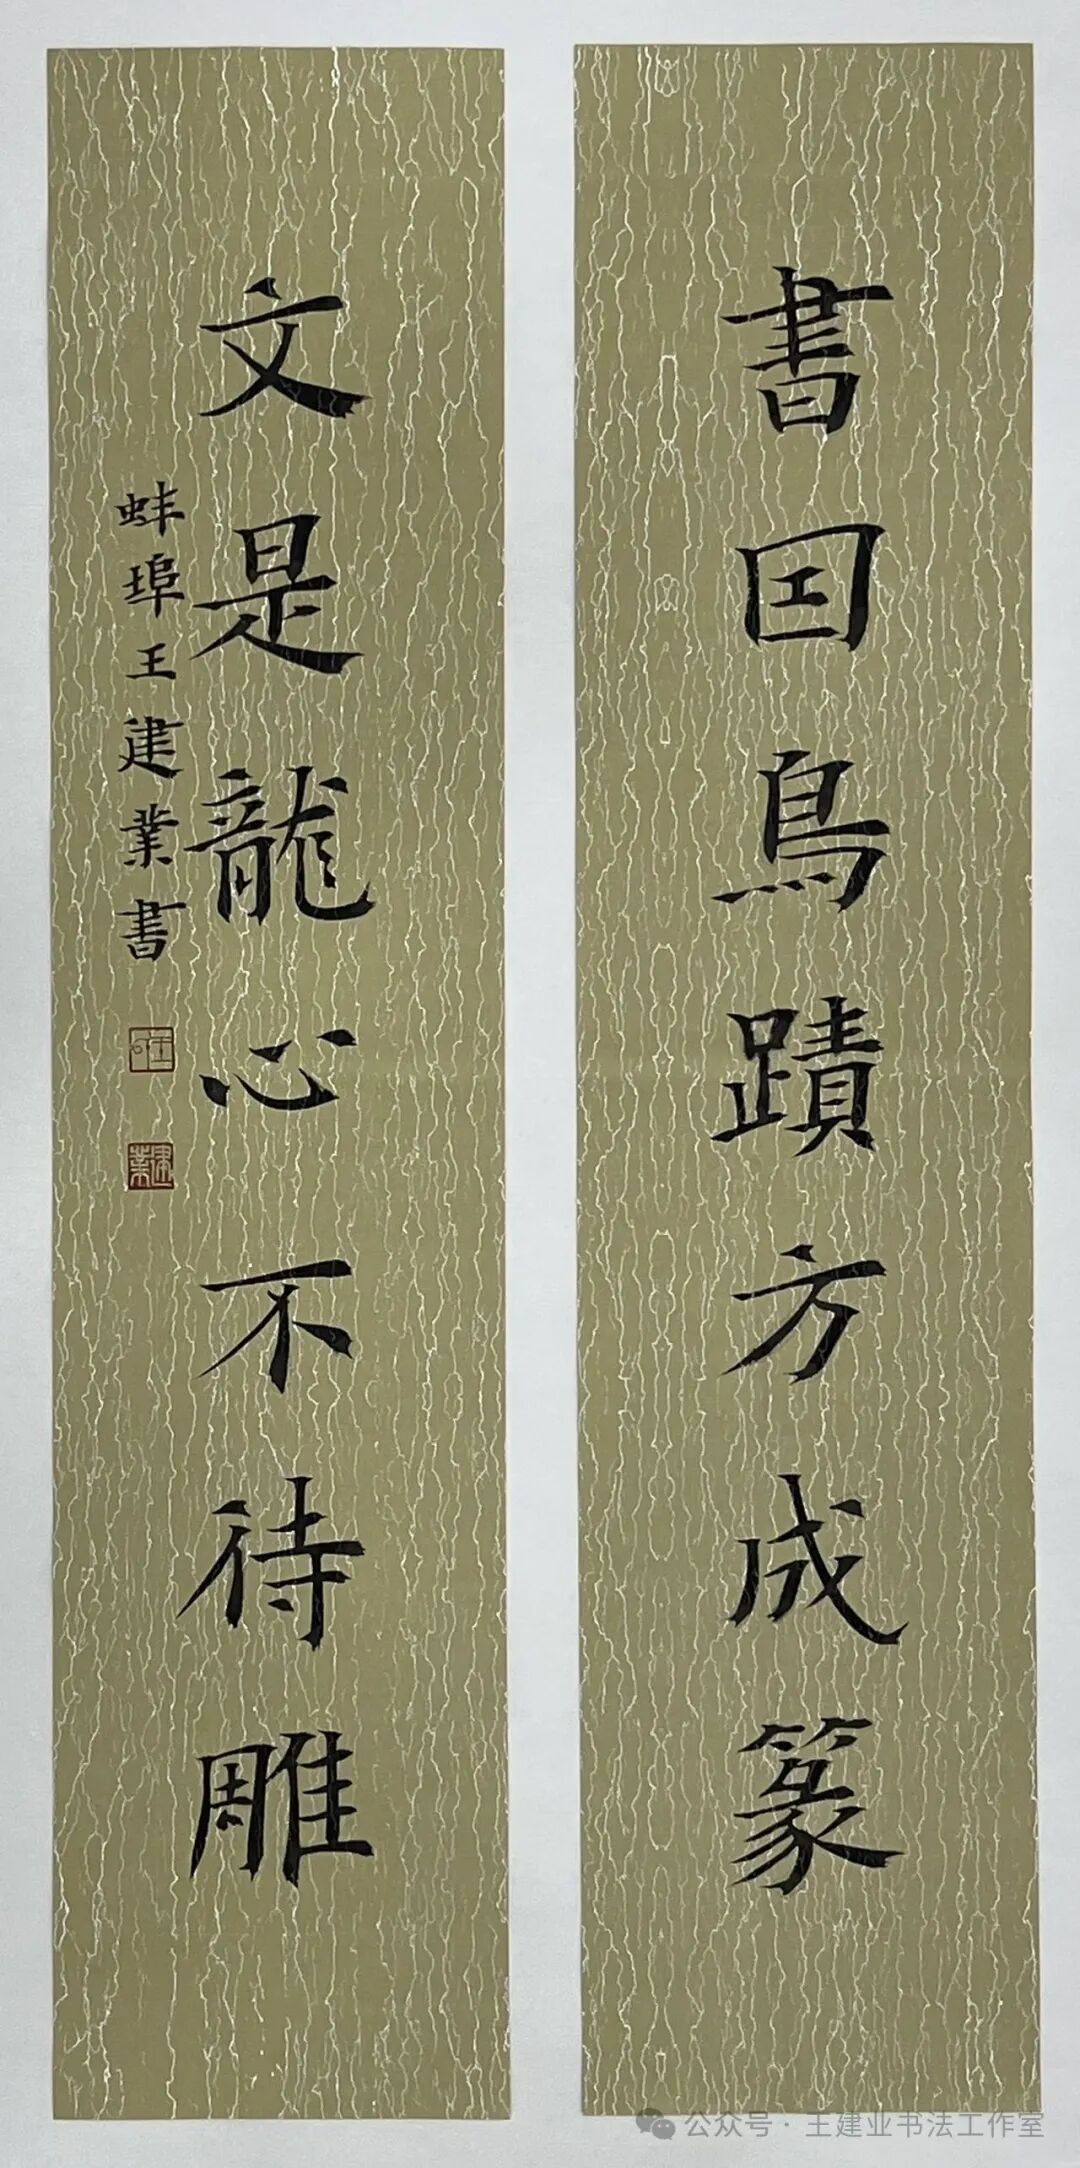 書囙鳥蹟方成篆
文是龍心不待雕
蚌埠王建業書
王
建業
公众号·王建业书法工作室